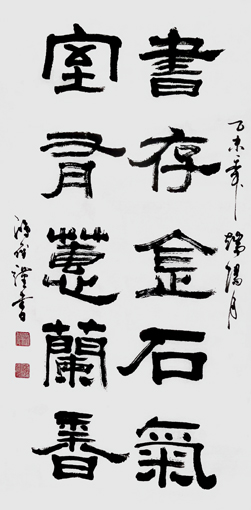 書存金石氣
室有蕙蘭香
乙未年端陽月